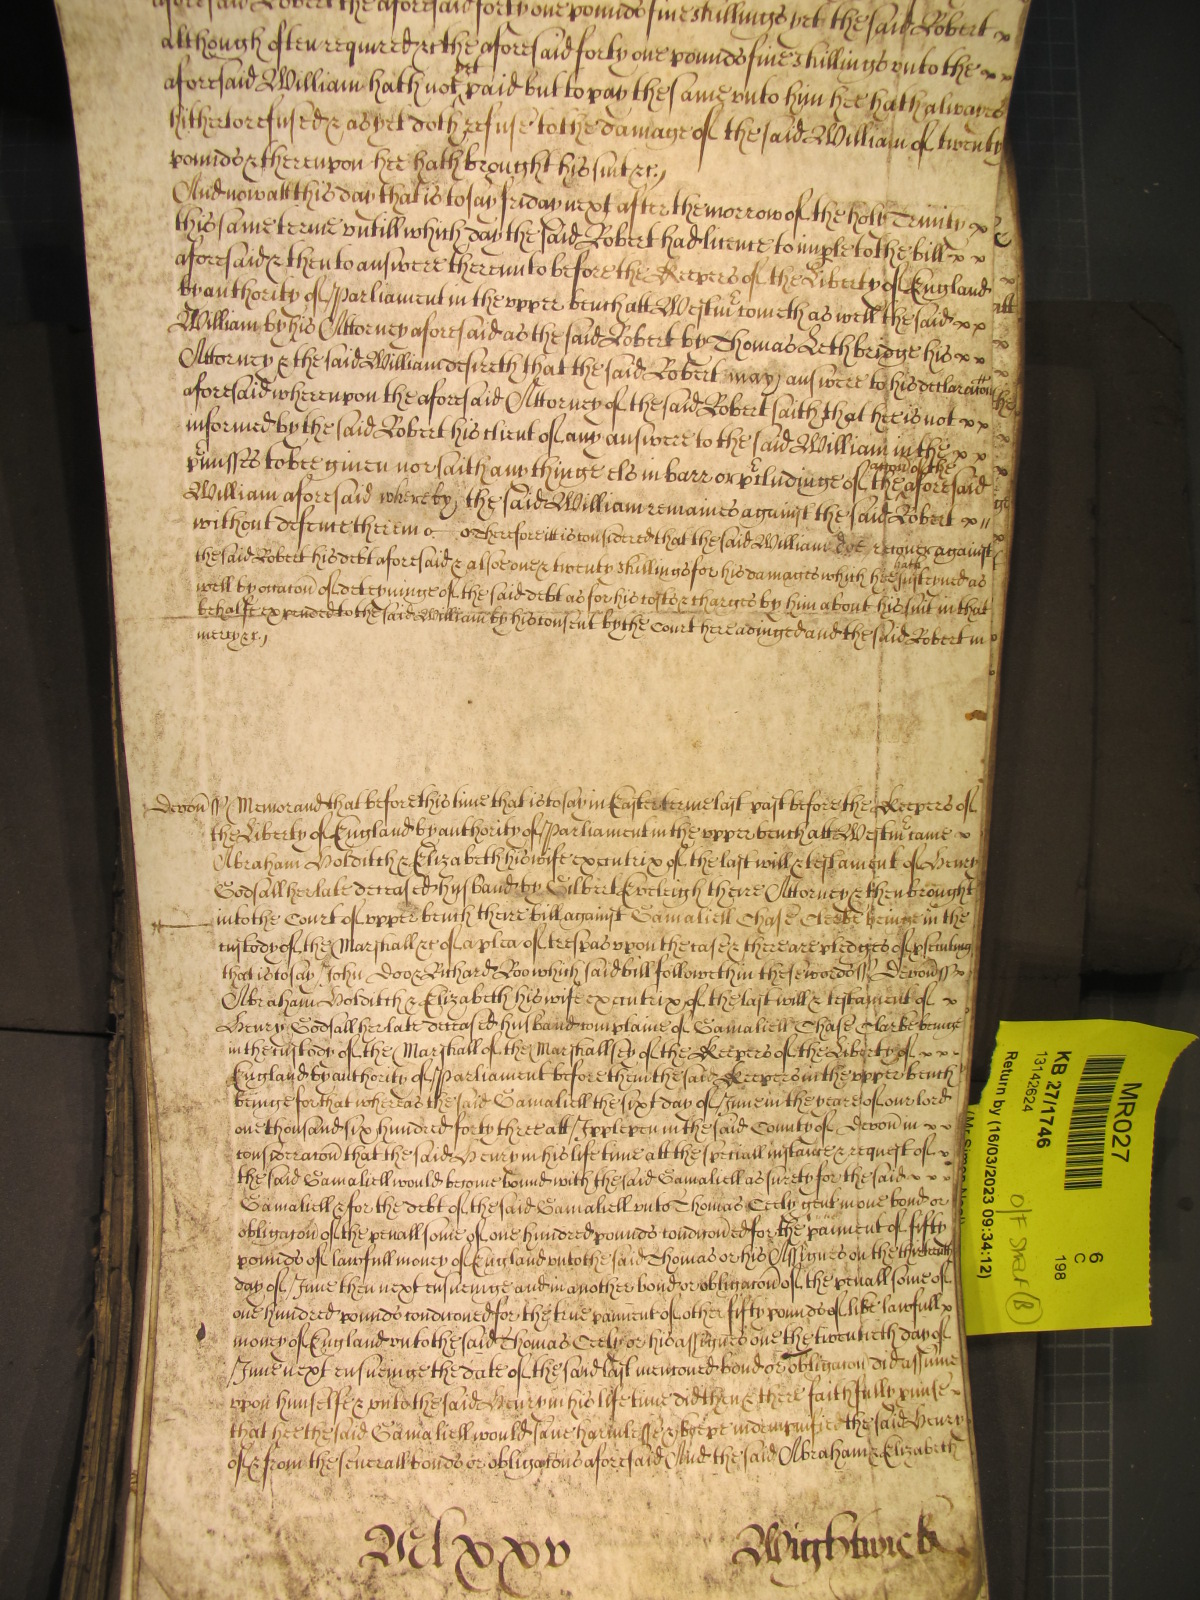 aforesaid Robert the aforesaid forty one pounds five shillings yet the said Robert x
although often required &c the aforesaid forty one pounds five shillings unto the x x
aforesaid William hath not yet paid but to pay the same unto him hee hath alwaies
hitherto refused & as yet doth refuse to the damage of the said William of twenty
pounds & thereupon hee hath brought his suit &c.
And now att this day that is to say friday next after the morrow of the holy Trinity x
this same terme untill which day the said Robert had licence to imple to the bill x x
aforesaid & then to answere thereunto before the Keepers of the Liberty of England
by authority of Parliament in the upper bench att Westmr cometh as well the said x x
William by his Attorney aforesaid as the said Robert by Thomas Lethbridge his x x
Attorney & the said William desireth that the said Robert may answere to his declaracon
aforesaid whereupon the aforesaid Attorney of the said Robert saith that hee is not x x
informed by the said Robert his client of any answere to the said William in the x x
pmisses to bee given nor saith any thinge els in barr or pcludinge of the accon of the aforesaid
William aforesaid whereby the said William remaines against the said Robert x
without defence therein &c Therefore it is considered that the said William doe recover against
the said Robert his debt aforesaid & alsoe one & twenty shillings for his damages which hee hath susteyned as
well by occacon of deteyninge of the said debt as for his costs & charges by him about his suit in that
behalfe expended to the said William by his consent by the Court here adiudged and the said Robert in
mercy &c.
Devon ss Memorand that before this time that is to say in Easter terme last past before the Keepers of
the Liberty of England by authority of Parliament in the upper bench att Westmr came x
Abraham Vokditch & Elizabeth his wife executrix of the last will & testament of Henry
Godsall her late deceased husband by Gilbert Eveleigh theire Attorney & then brought
into the Court of upper bench there bill against Gamaliell Chase Clerke beinge in the
custody of the Marshall &c of a plea of trespas upon the case & there are pledges of psecuting
that is to say John Doo & Richard Roo which said bill followeth in these words ss Devon ss x
Abraham Vokditch & Elizabeth his wife executrix of the last will & testament of x
Henry Godsall her late deceased husband complaine of Gamaliell Chase Clarke beinge
in the custody of the Marshall of the Marshallsey of the Keepers of the Liberty of x x x
England by authority of Parliament before them the said Keepers in the upper bench
beinge for that whereas the said Gamaliell the sixt day of June in the yeare of our lord
one thousand six hundred forty three att Appleyen in the said County of Devon in x x
consideracon that the said Henry in his life time att the speciall instance & request of x
the said Gamaliell would become bound with the said Gamaliell as surety for the said x x x
Gamaliell & for the debt of the said Gamaliell unto Thomas Ceely gent in one bond or
obligacon of the penall some of one hundred pounds condiconed for the paiment of fifty
pounds of lawfull money of England unto the said Thomas or his Assignes on the
day of June then next ensueinge and in another bond or obligacon of the penall some of
one hundred pounds condiconed for the true paiment of other fifty pounds of like lawfull x
money of England unto the said Thomas Ceely or his assignes one the twentieth day of
June next ensueinge the date of the said last menconed bond or obligacon did assume
upon himselfe & unto the said Henry in his life time did then & there faithfully pmise
that hee the said Gamaliell would save harmlesse & keepe indempnified the said Henry
of & from the severall bonds or obligacons aforesaid And the said Abraham & Elizabeth
Mlxxv Wightwick
MR027
KB 27/1746
13142624
Return by (16/03/2023 09:34:12)
6
C
198